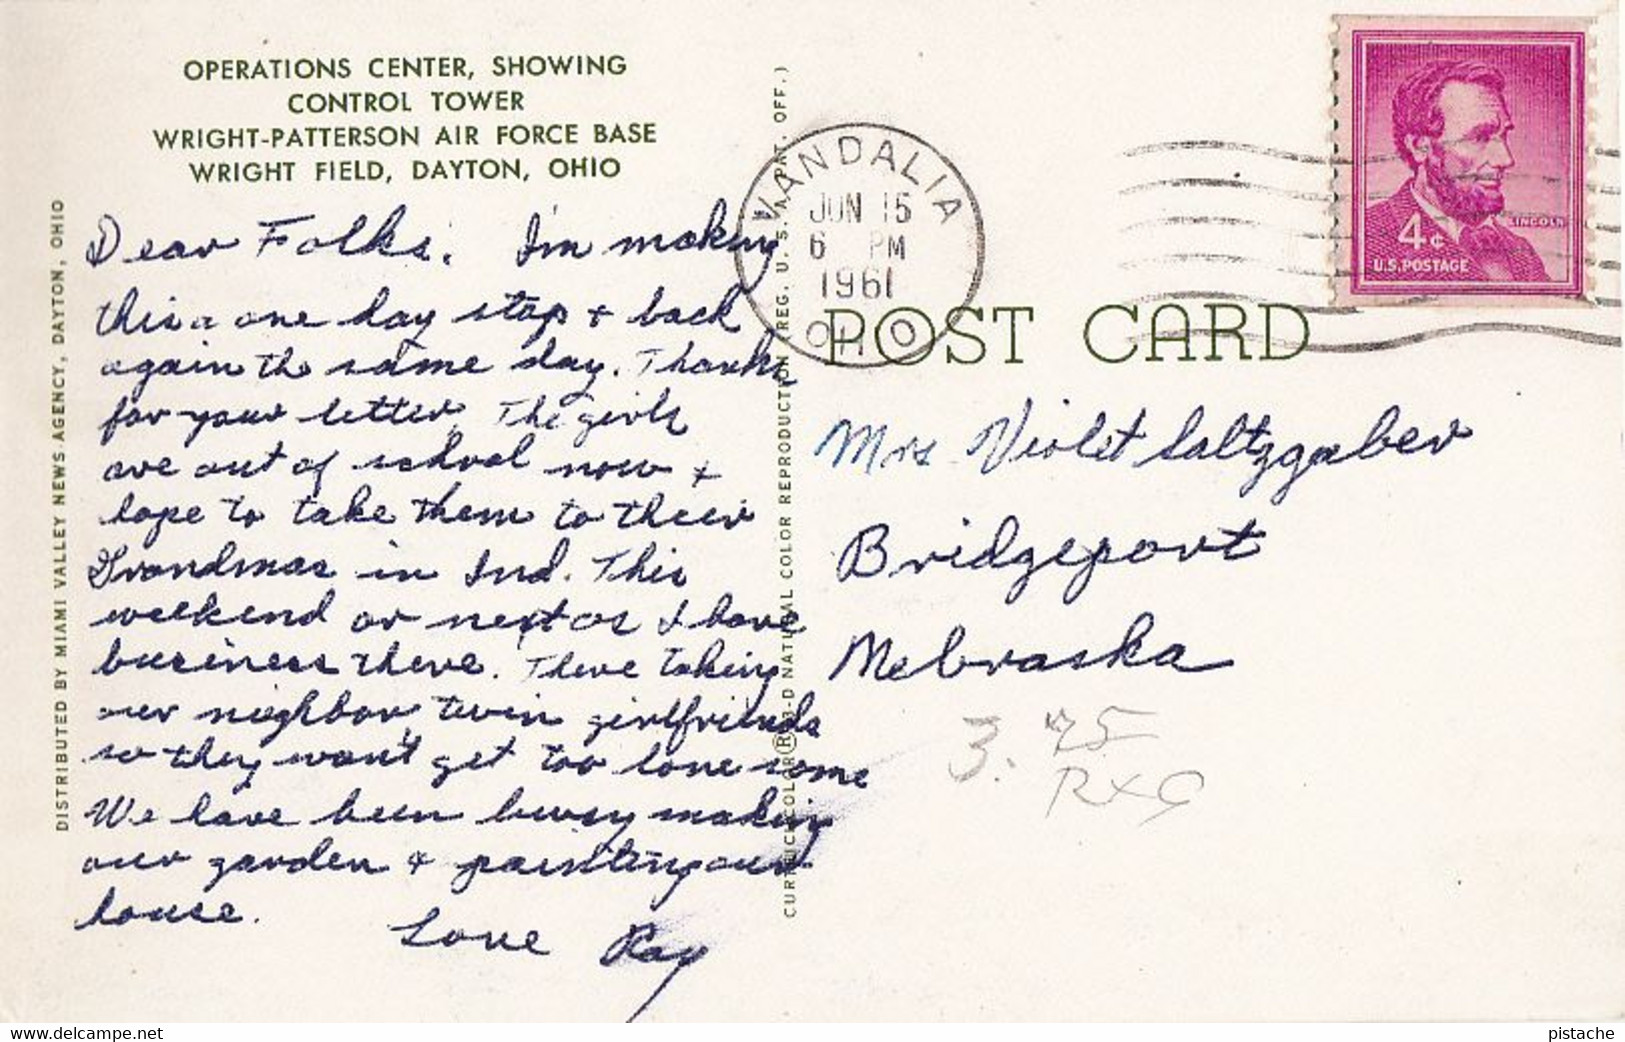 OPERATIONS CENTER, SHOWING
CONTROL TOWER
WRIGHT-PATTERSON AIR FORCE BASE
WRIGHT FIELD, DAYTON, OHIO
Dear Folks. I'm making
this a one day stop + back
again the same day. Thanks
for your letter. The girls
are out of school now +
hope to take them to their
Grandmas in Ind. This
weekend or next as I have
business there. There taking
our neighbor twin girlfriends
so they won't get too lonesome
We have been busy making
our garden + painting our
house.
Love Ray
DISTRIBUTED BY MIAMI VALLEY NEWS AGENCY, DAYTON, OHIO
CURTEICHCOLOR® 3-D NATURAL COLOR REPRODUCTION (REG. U. S. A. PAT. OFF.)
VANDALIA
JUN 15
6 PM
1961
OHIO
LINCOLN
4¢
U.S. POSTAGE
POST CARD
Mrs Violet Saltzgaber
Bridgeport
Nebraska
3.
www.delcampe.net
pistache